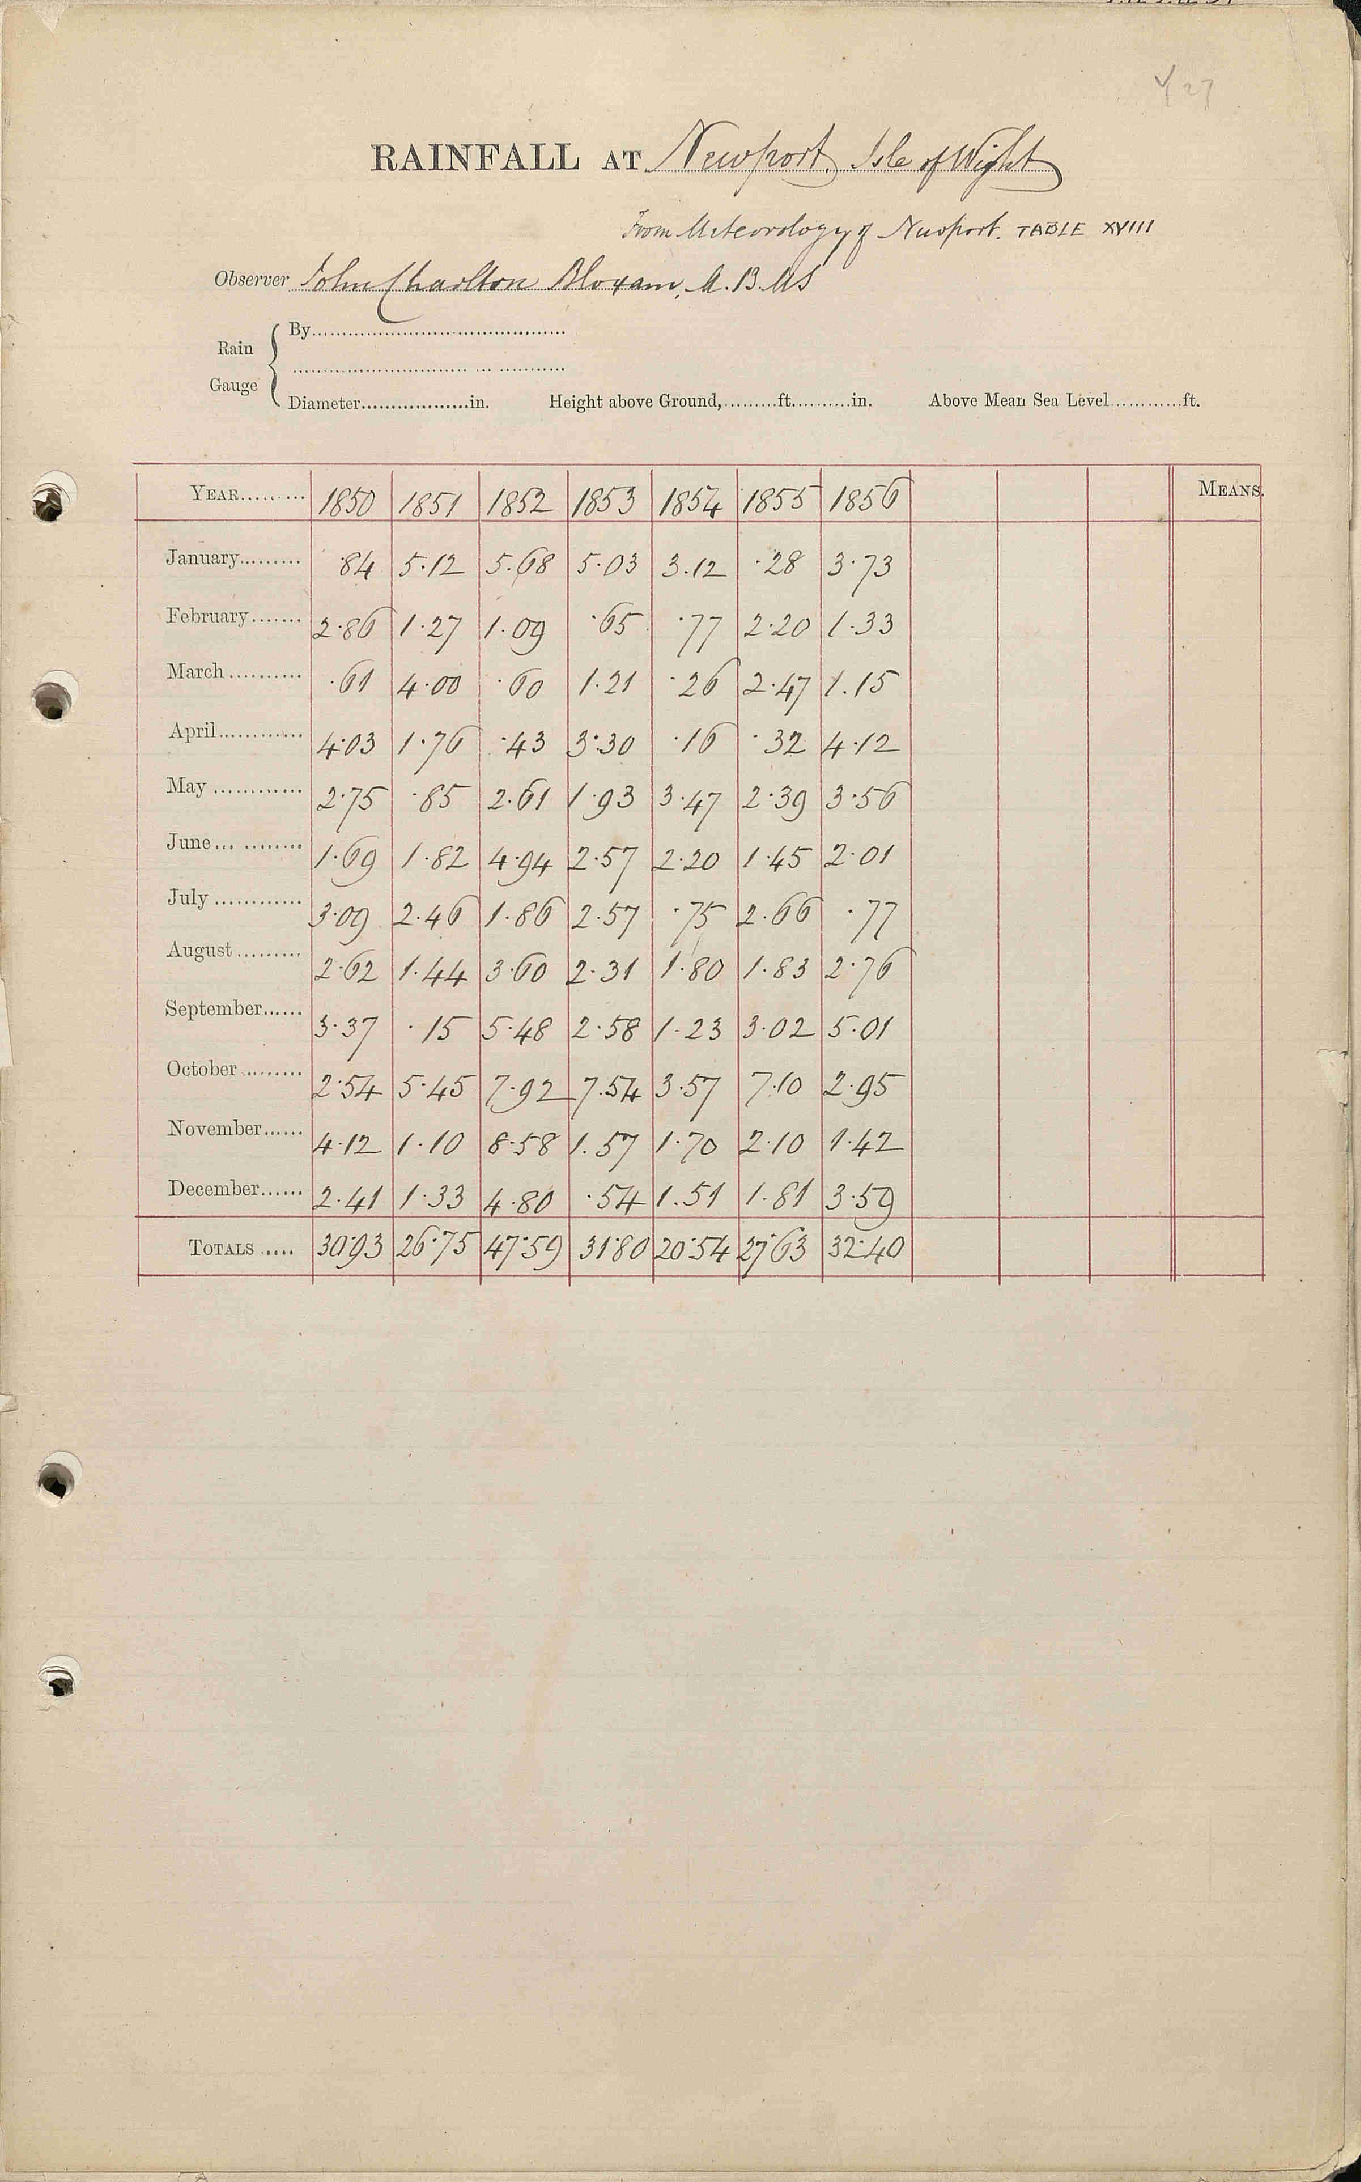 RAINFALL AT Newport, Isle of Wight
From Meteorology of Newport. TABLE XVIII
Observer John Charlton Bloxam, M.B.MS
Rain Gauge { By
Diameter in. Height above Ground, ft. in. Above Mean Sea Level ft.
YEAR 1850 1851 1852 1853 1854 1855 1856 MEANS.
January ·84 5·12 5·68 5·03 3·12 ·28 3·73
February 2·86 1·27 1·09 ·65 ·77 2·20 1·33
March ·61 4·00 ·60 1·21 ·26 2·47 1·15
April 4·03 1·76 ·43 3·30 ·16 ·32 4·12
May 2·75 ·85 2·61 1·93 3·47 2·39 3·56
June 1·69 1·82 4·94 2·57 2·20 1·45 2·01
July 3·09 2·46 1·86 2·57 ·75 2·66 ·77
August 2·62 1·44 3·60 2·31 1·80 1·83 2·76
September 3·37 ·15 5·48 2·58 1·23 3·02 5·01
October 2·54 5·45 7·92 7·54 3·57 7·10 2·95
November 4·12 1·10 8·58 1·57 1·70 2·10 1·42
December 2·41 1·33 4·80 ·54 1·51 1·81 3·59
TOTALS 30·93 26·75 47·59 31·80 20·54 27·63 32·40